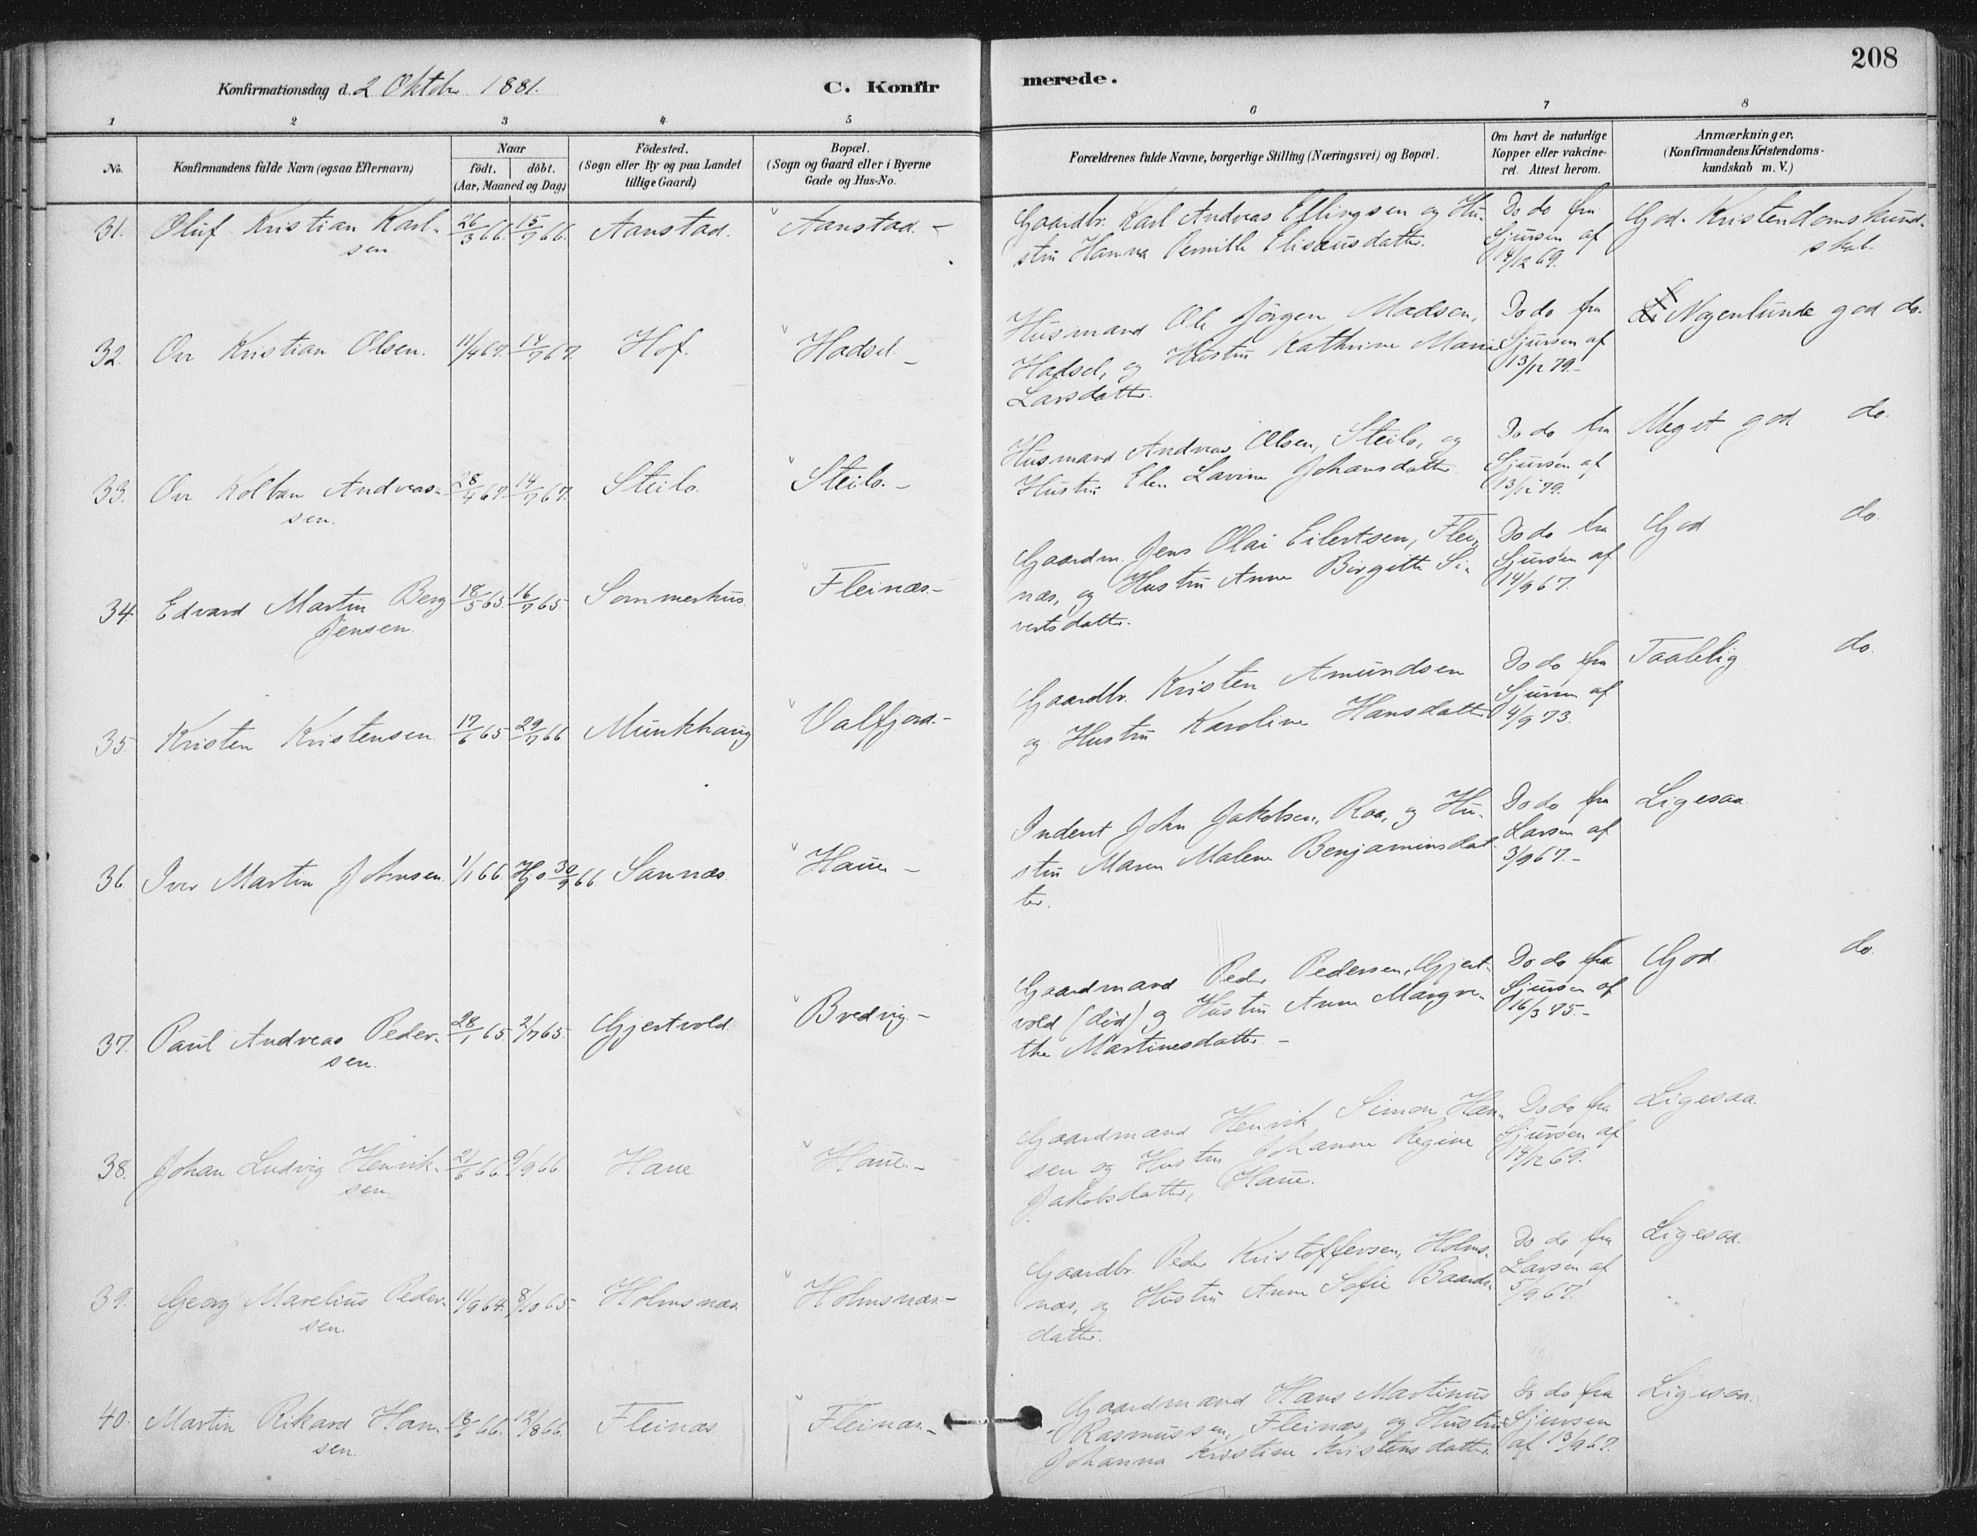 208
Konfirmationsdag d. 2 Oktober 1881.
C. Konfir merede.
1 2 3 4 5 6 7 8
No.
Konfirmandens fulde Navn (ogsaa Efternavn)
Naar
födt. döbt.
(Aar, Maaned og Dag)
Födested.
(Sogn eller By og paa Landet
tillige Gaard)
Bopæl.
(Sogn og Gaard eller i Byerne
Gade og Hus-No.
Forældrenes fulde Navne, borgerlige Stilling (Næringsvei) og Bopæl.
Om havt de naturlige
Kopper eller vakcine-
ret. Attest herom.
Anmærkninger.
(Konfirmandens Kristendoms-
kundskab m. V.)
31. Oluf Kristian Karl- 26/3 66. 15/7 66. Aanstad. Aanstad. -
sen
Gaardbr. Karl Andreas Ellingsen og Hu-
stru Hanna Pernille Elisæusdatter.
Do do fra
Sjursen af
14/12 69.
God Kristendomskund-
skab.
32. Ove Kristian Olsen. 11/4 67. 14/7 67. Hof. Hadsel. -
Husmand Ole Jörgen Madsen,
Hadsel, og Hustru Kathrine Marie
Larsdatter.
Do do fra
Sjursen af
13/12 79. -
Nogenlunde god do.
33. Ove Kolban Andreas- 28/4 67. 14/7 67. Steilo. Steilo. -
sen.
Husmand Andreas Olsen, Steilo, og
Hustru Elen Lavine Johansdatter.
Do do fra
Sjursen af
13/12 79.
Meget god do.
34. Edvard Martin Berg 18/5 65. 16/7 65. Sommerhus Fleinæs. -
Jensen.
Gaardm. Jens Olai Eilertsen, Flei-
næs, og Hustru Anne Birgitte Si-
vertsdatter.
Do do fra
Sjursen af
14/9 67.
God do.
35. Kristen Kristensen. 17/6 65 29/7 66 Munkhaug Valfjord. -
Gaardbr. Kristen Amundsen
og Hustru Karoline Hansdatter
Do do fra
Sjursen af
4/9 73.
Taalelig do.
36. Iver Martin Johnsen 1/1 66. Hj. 30/9 66 Sannæs. Haue -
Inderst John Jakobsen, Raa, og Hu-
stru Maren Malene Benjaminsdat
ter.
Do do fra
Larsen af
3/9 67. -
Ligesaa
37. Paul Andreas Peder- 28/1 65. 2/7 65. Gjertvold. Bredvig -
sen.
Gaardmand Peder Pedersen, Gjert-
vold (död) og Hustru Anne Margre-
the Martinesdatter -
Do do fra
Sjursen af
16/3 75 -
God do.
38. Johan Ludvig Henrik- 21/6 66. 9/9 66. Haue Haue. -
sen.
Gaardmand Henrik Simon Han-
sen og Hustru Johanne Regine
Jakobsdatter, Haue.
Do do fra
Sjursen af
14/12 69.
Ligesaa.
39. Georg Marelius Peder- 11/9 64. 8/10 65. Holmsnæs Holmsnæs. -
sen.
Gaardbr. Peder Kristoffersen, Holms-
næs, og Hustru Anne Sofie Baards-
datter.
Do do fra
Larsen af
5/9 67.
Ligesaa.
40. Martin Rikard Han- 18/6 66. 12/8 66. Fleinæs Fleinæs. -
sen.
Gaardmand Hans Martinus
Rasmussen, Fleinæs, og Hustru
Johanna Kristine Kristensdatter.
Do do fra
Sjursen
af 13/9 67.
Ligesaa.